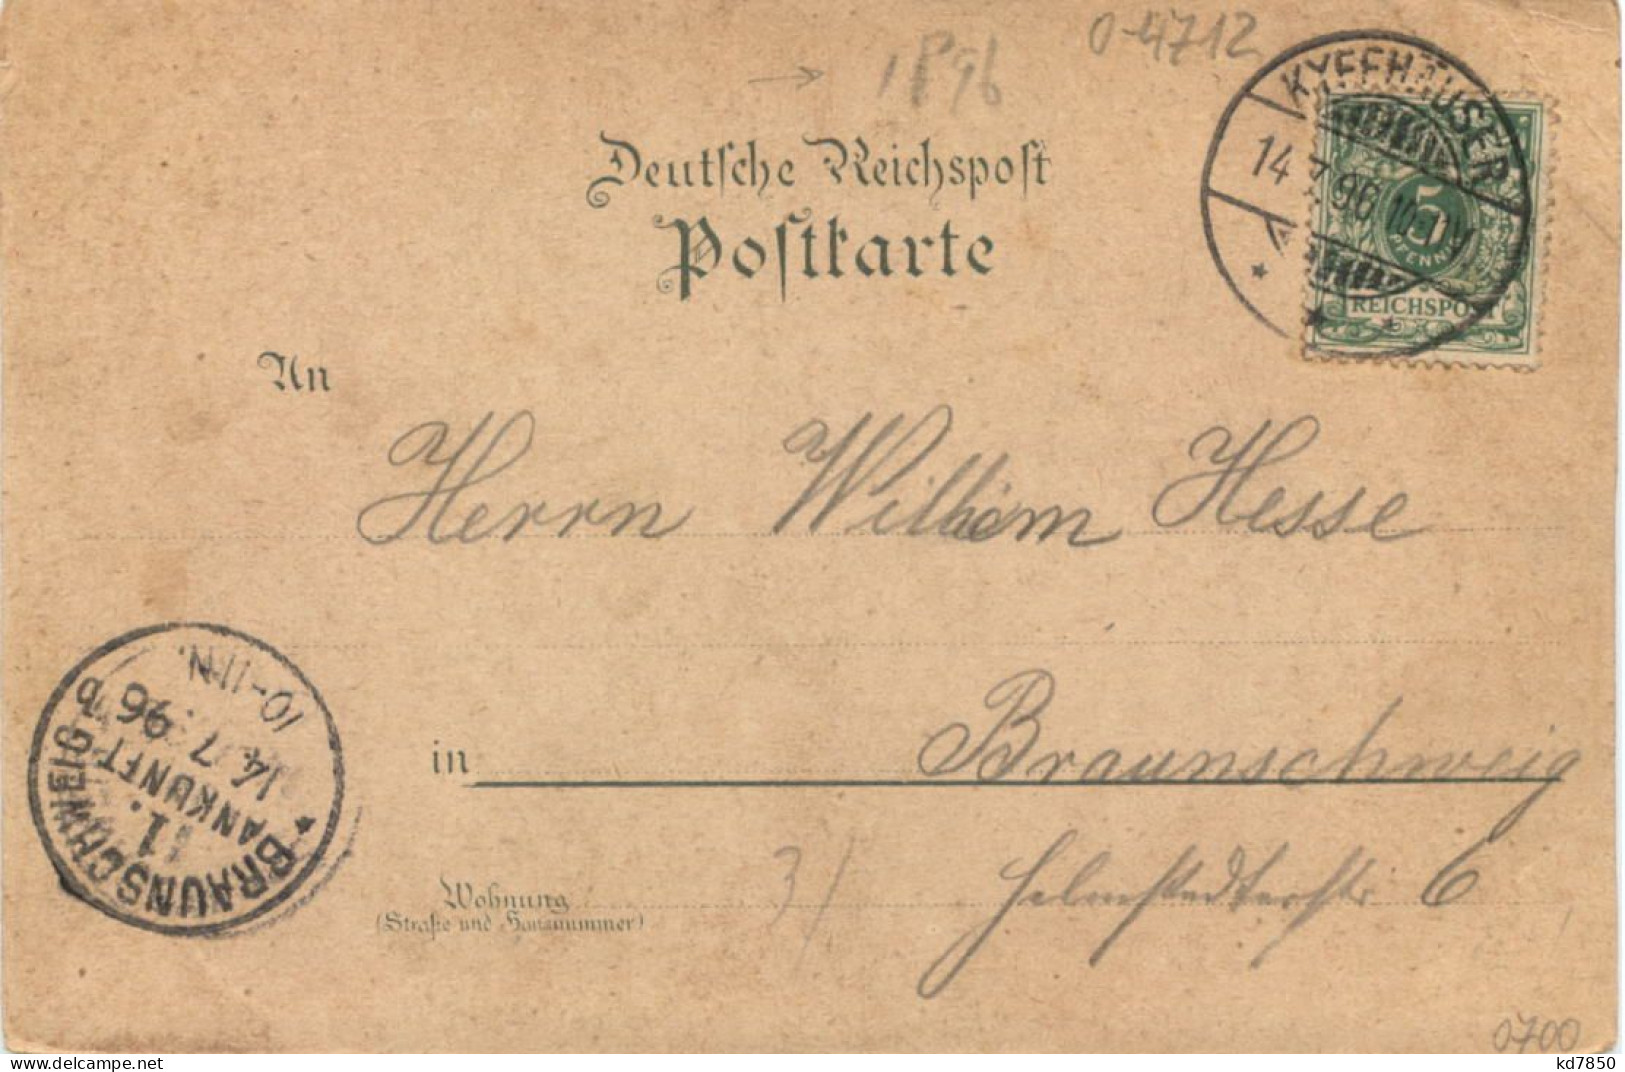 0-4712
1896
KYFFHÄUSER
14.7.96 10-11V
5
PFENNIG
REICHSPOST
Deutsche Reichspost
Postkarte
An
Herrn Wilhem Hesse
in Braunschweig
Wohnung
(Straße und Hausnummer)
3)
Helmstedterstr 6
* BRAUNSCHWEIG b
1.
ANKUNFT
14.7.96
10-11N.
0700
www.delcampe.net
kd7850